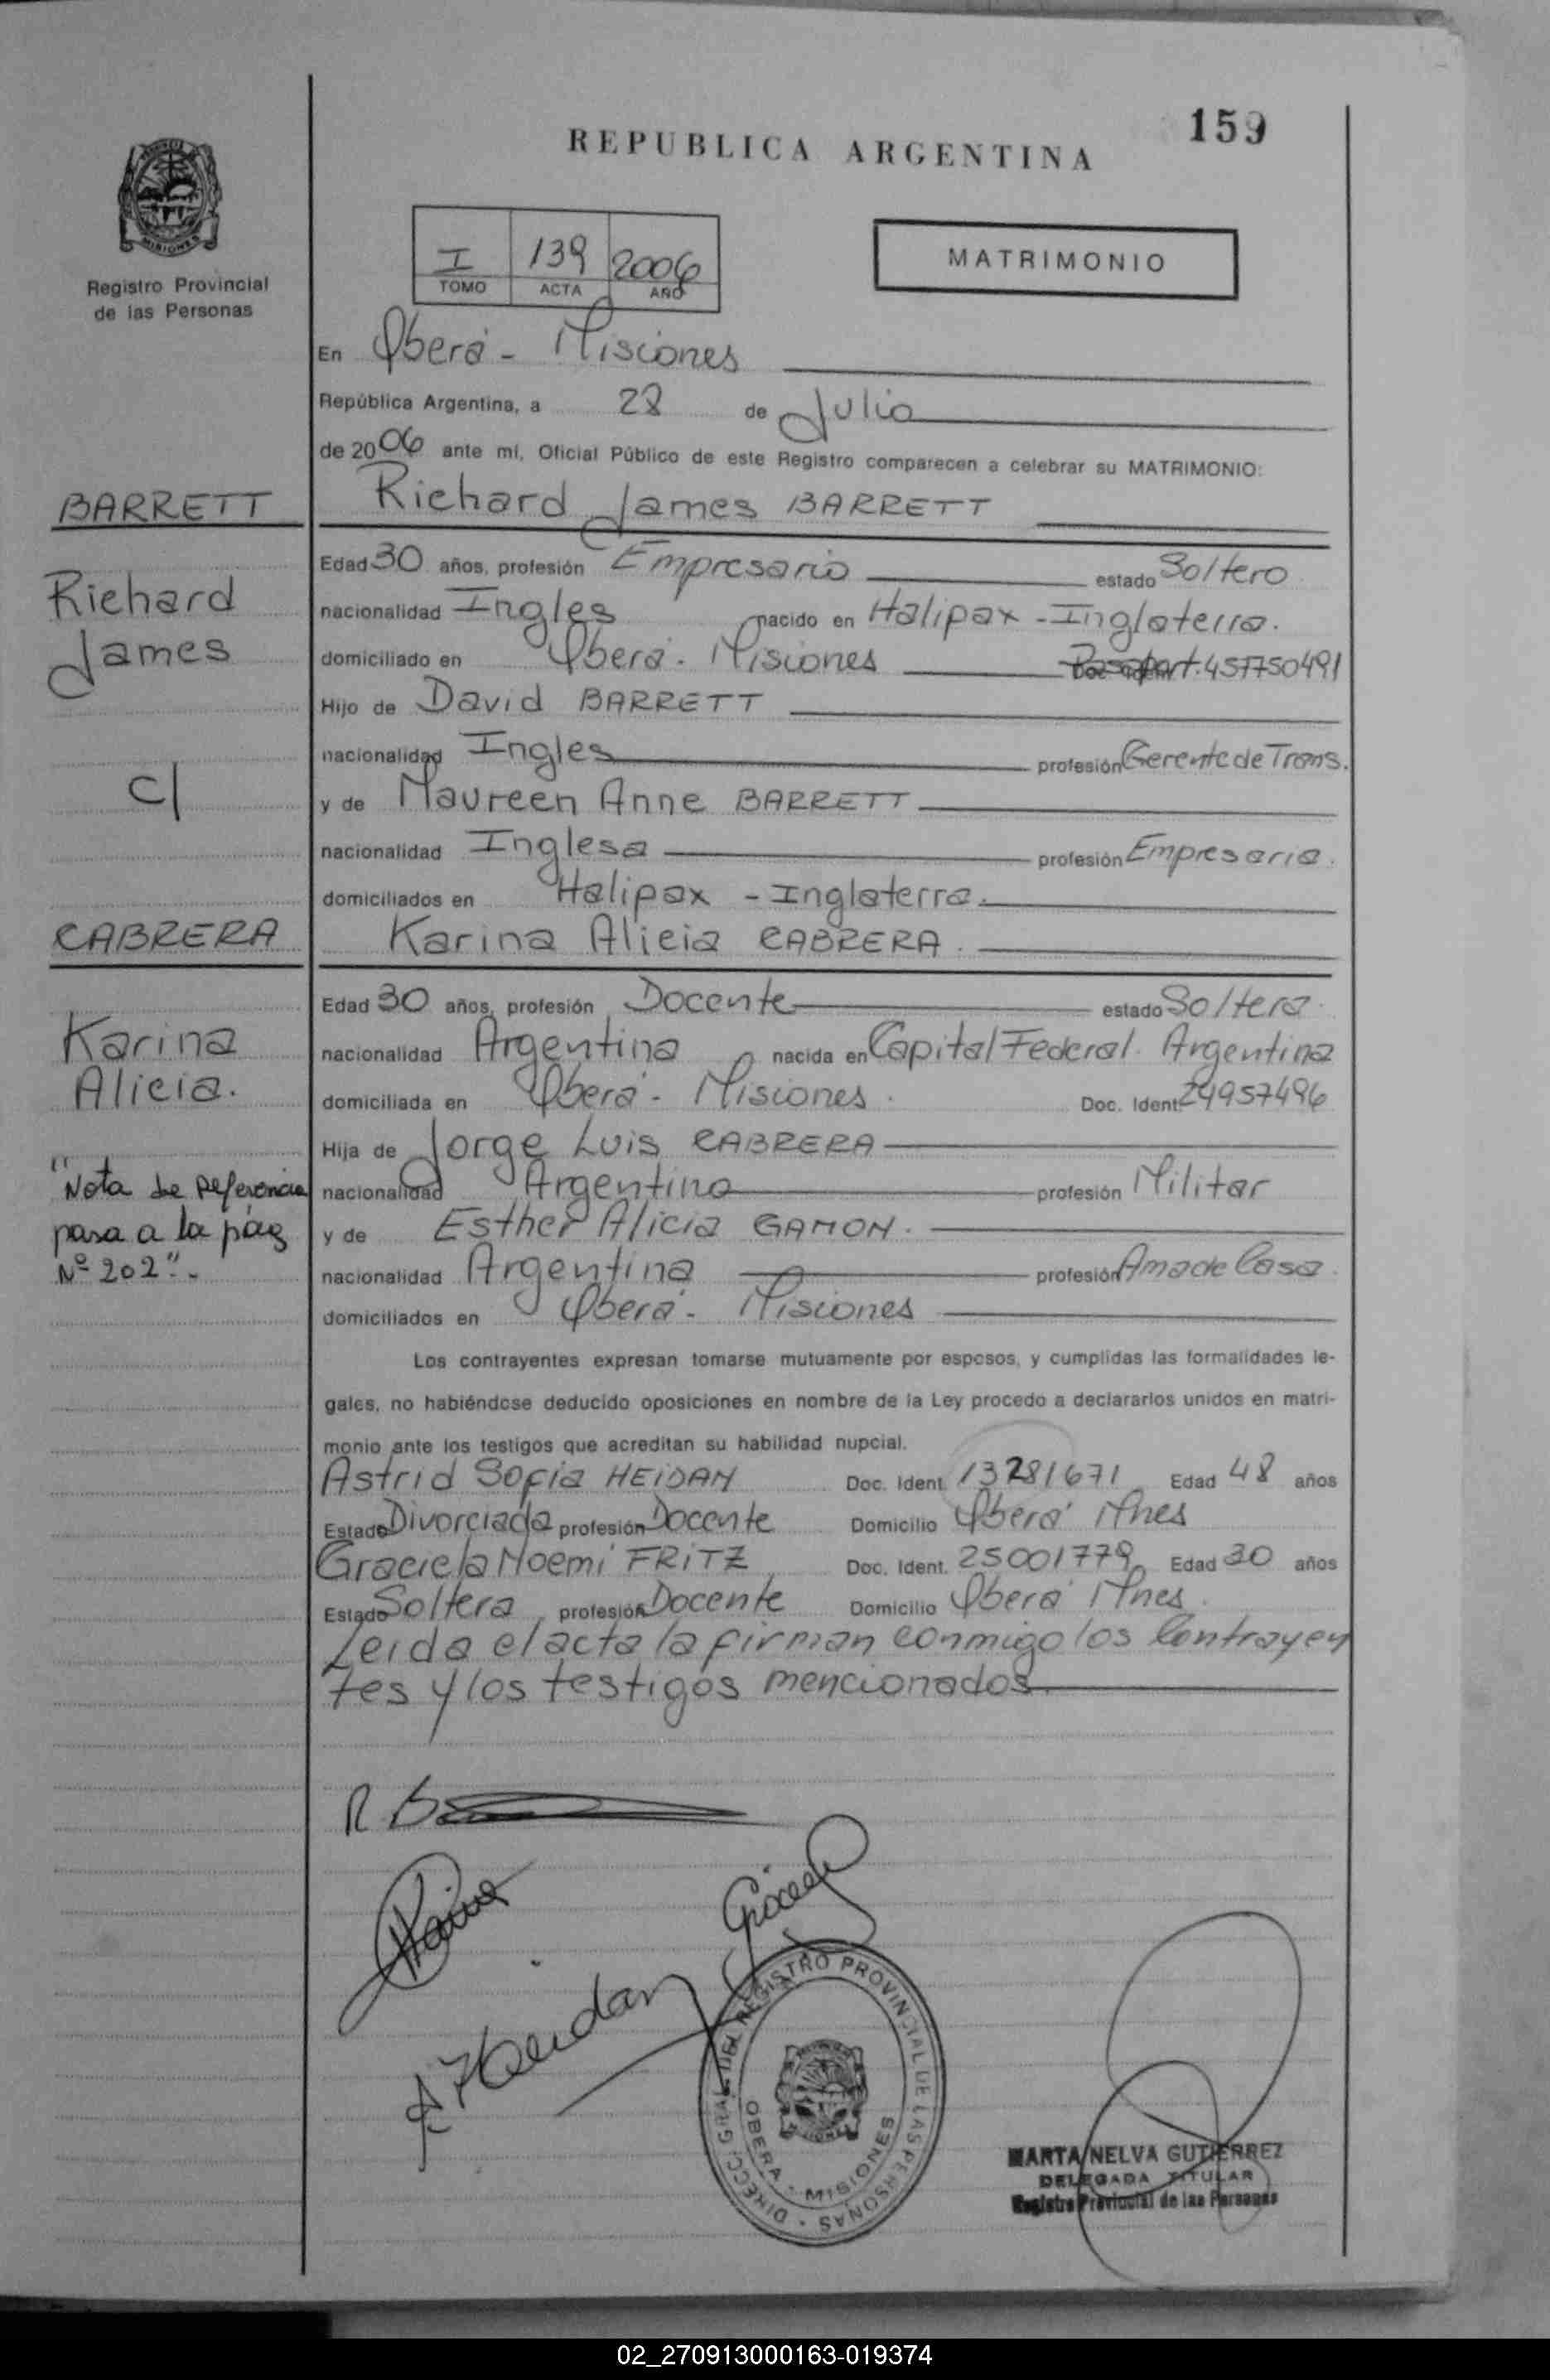 159
REPUBLICA ARGENTINA
MISIONES
Registro Provincial
de las Personas
I 139 2006
TOMO ACTA AÑO
MATRIMONIO
En Oberá - Misiones
República Argentina, a 28 de Julio
de 2006 ante mí, Oficial Público de este Registro comparecen a celebrar su MATRIMONIO:
BARRETT
Richard James BARRETT
Richard
James
c/
Edad 30 años, profesión Empresario estado Soltero
nacionalidad Ingles nacido en Halipax - Inglaterra.
domiciliado en Oberá - Misiones Pasaport. 457750491
Hijo de David BARRETT
nacionalidad Ingles profesión Gerente de Trans.
y de Maureen Anne BARRETT
nacionalidad Inglesa profesión Empresaria.
domiciliados en Halipax - Inglaterra.
CABRERA
Karina Alicia CABRERA.
Karina
Alicia.
Edad 30 años, profesión Docente estado Soltera.
nacionalidad Argentina nacida en Capital Federal. Argentina
domiciliada en Oberá - Misiones. Doc. Ident. 24957496
Hija de Jorge Luis CABRERA
nacionalidad Argentino profesión Militar
y de Esther Alicia GAMON.
nacionalidad Argentina profesión Ama de Casa.
domiciliados en Oberá - Misiones
"Nota de Referencia
pasa a la pág
Nº 202".-
Los contrayentes expresan tomarse mutuamente por esposos, y cumplidas las formalidades le-
gales, no habiéndose deducido oposiciones en nombre de la Ley procedo a declararlos unidos en matri-
monio ante los testigos que acreditan su habilidad nupcial.
Astrid Sofia HEIDAN Doc. Ident. 13281671 Edad 48 años
Estado Divorciada profesión Docente Domicilio Oberá Mnes
Graciela Noemi FRITZ Doc. Ident. 25001779 Edad 30 años
Estado Soltera profesión Docente Domicilio Oberá Mnes.
Leida el acta la firman conmigo los Contrayen
tes y los testigos mencionados.
R. B
Karina
Graciela
A. Heidan
DIRECC. GRAL. DEL REGISTRO PROVINCIAL DE LAS PERSONAS
OBERA - MISIONES
MARTA NELVA GUTIERREZ
DELEGADA TITULAR
Registro Provincial de las Personas
02_270913000163-019374